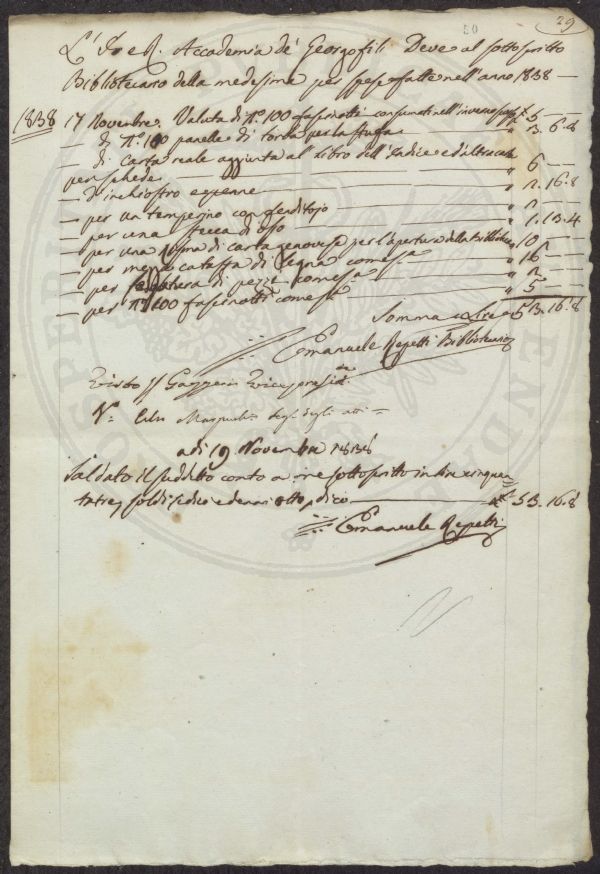 50 29
L'I. e R. Accademia de' Georgofili Deve al sottoscritto
Bibliotecario della medesima per spese fatte nell'anno 1838 —
1838 17 Novembre. Valuta di N.º 100 fascinotti consumati nell'inverno £ 5 — —
— di N.º 100 panelle di torba per la stufa — " 3. 6. 8
— di carta reale aggiunta al Libro dell'Indice e d'altra carta
per schede — " 6 — —
— D'inchiostro e penne — " 2. 16. 8
— per un temperino con fenditojo — "
— per una stecca di osso — " 1. 13. 4
— per una risma di carta genovese per l'apertura della Biblioteca " 10 — —
— per mezza catasta di legna come sa " 16 — —
— per di pezzi come sa "
— per N.º 100 fascinotti come sa " 5 — —
Somma Lire 53. 16. 8
Emanuele Repetti Bibliotecario
Visto G. Gazzeri Vicepresid.te
V.º degli atti —
a dì 19 Novembre 1838
Saldato il suddetto conto a me sottoscritto in lire cinquan-
tatre, soldi sedici e denari otto, dico — £ 53. 16. 8
Emanuele Repetti